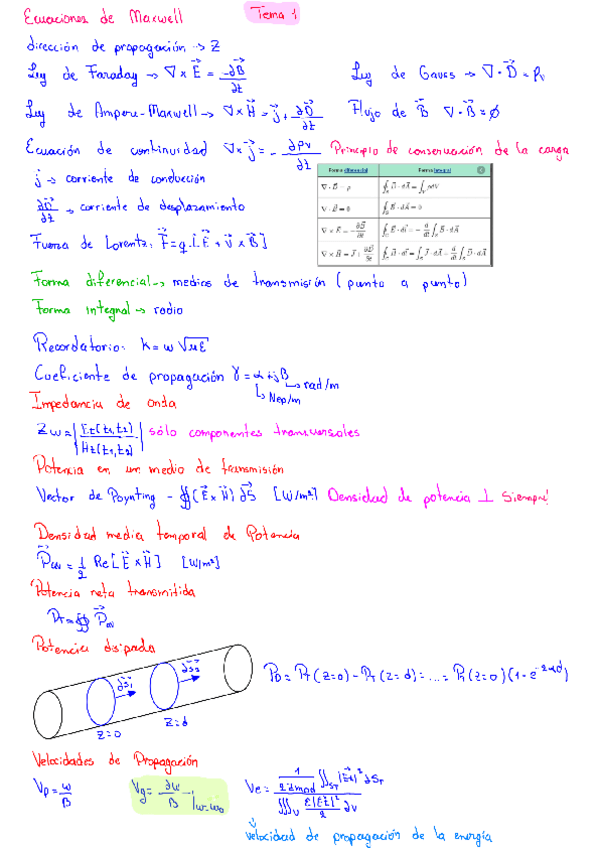 Ecuaciones de Maxwell Tema 1
dirección de propagación → z
Ley de Faraday → ∇ x E⃗ = -∂B⃗/∂t Ley de Gauss → ∇·D⃗ = ρv
Ley de Ampere-Maxwell → ∇ x H⃗ = j⃗ + ∂D⃗/∂t Flujo de B⃗ ∇·B⃗ = ∅
Ecuación de continuidad ∇ x j⃗ = - ∂ρv/∂t Principio de conservación de la carga
j⃗ → corriente de conducción
∂D⃗/∂t → corriente de desplazamiento
Fuerza de Lorentz: F⃗ = q·[E⃗ + v⃗ x B⃗]
Forma diferencial Forma integral
∇·D = ρ ∮ D·dA = ∫ ρdV
∇·B = 0 ∮ B·dA = 0
∇ x E = -∂B/∂t ∮ E·dl = - d/dt ∫ B·dA
∇ x H = J + ∂D/∂t ∮ H·dl = ∫ J·dA + d/dt ∫ D·dA
Forma diferencial → medios de transmisión (punto a punto)
Forma integral → radio
Recordatorio: k = w √με
Coeficiente de propagación γ = α + jβ
Nep/m rad/m
Impedancia de onda
Zw = |Et(t1,t2)| / |Ht(t1,t2)| sólo componentes transversales
Potencia en un medio de transmisión
Vector de Poynting - ∯(E⃗ x H⃗) dS⃗ [W/m²] Densidad de potencia ⊥ Siempre!
Densidad media temporal de Potencia
P⃗av = 1/2 Re[E⃗ x H⃗] [W/m²]
Potencia neta transmitida
PT = ∯ P⃗av
Potencia disipada
∂S⃗1 ∂S⃗2
z=0 z=d
PD = PT(z=0) - PT(z=d) = ... = PT(z=0)(1 - e^-2αd)
Velocidades de Propagación
Vp = w/β Vg = ∂w/β |w=w0 Ve =
velocidad de propagación de la energía